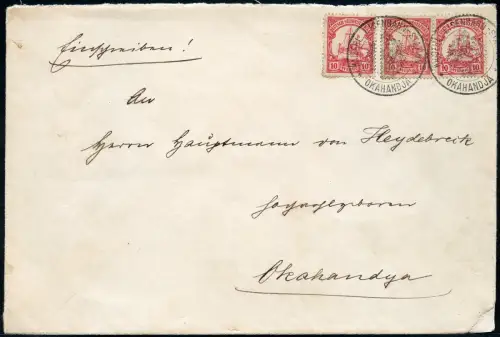 Einschreiben!
An
Herrn Hauptmann von Heydebreck
Hochwohlgeboren
Okahandya
10 10
10 10
OKAHANDJA
OKAHANDJA